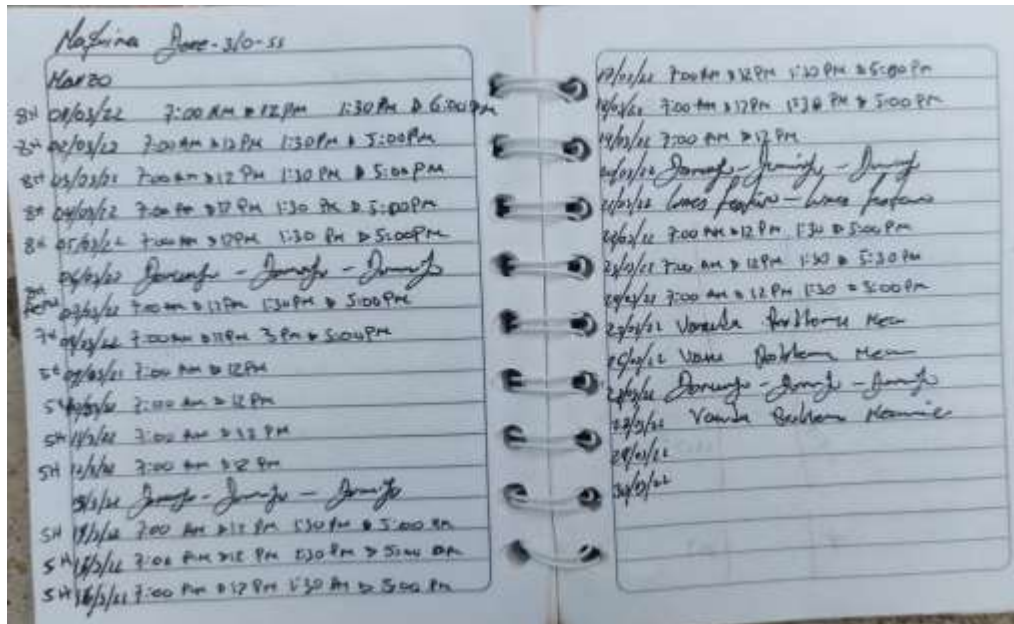 Maquina Deere-310-SJ
Marzo
8H 01/03/22 7:00 AM a 12 PM 1:30 PM a 6:00 PM
02/03/22 7:00 AM a 12 PM 1:30 PM a 5:00 PM
8H 03/03/22 7:00 AM a 12 PM 1:30 PM a 5:00 PM
8H 04/03/22 7:00 AM a 12 PM 1:30 PM a 5:00 PM
8H 05/03/22 7:00 AM a 12 PM 1:30 PM a 5:00 PM
06/03/22 Domingo - Domingo - Domingo
07/03/22 7:00 AM a 12 PM 1:30 PM a 5:00 PM
7H 08/03/22 7:00 AM a 12 PM 3 PM a 5:00 PM
5H 09/03/22 7:00 AM a 12 PM
5H 10/03/22 7:00 AM a 12 PM
5H 11/3/22 7:00 AM a 12 PM
5H 12/3/22 7:00 AM a 12 PM
13/3/22 Domingo - Domingo - Domingo
5H 14/3/22 7:00 AM a 12 PM 1:30 PM a 5:00
5H 15/3/22 7:00 AM a 12 PM 1:30 PM a 5:00 PM
5H 16/3/22 7:00 AM a 12 PM 1:30 PM a 5:00 PM
17/03/22 7:00 AM a 12 PM 1:30 PM a 5:00 PM
18/03/22 7:00 AM a 12 PM 1:30 PM a 5:00 PM
19/03/22 7:00 AM a 12 PM
20/03/22 Domingo - Domingo - Domingo
21/03/22 Lunes festivo - Lunes festivo
22/03/22 7:00 AM a 12 PM 1:30 a 5:00 PM
23/03/22 7:00 AM a 12 PM 1:30 a 5:30 PM
24/03/22 7:00 AM a 12 PM 1:30 a 5:00 PM
25/03/22 Varada
26/03/22
27/03/22 Domingo - Domingo - Domingo
28/03/22 Varada
29/03/22
30/03/22